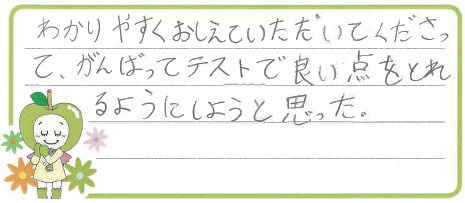 わかりやすくおしえていただいてくださっ
て、がんばってテストで良い点をとれ
るようにしようと思った。